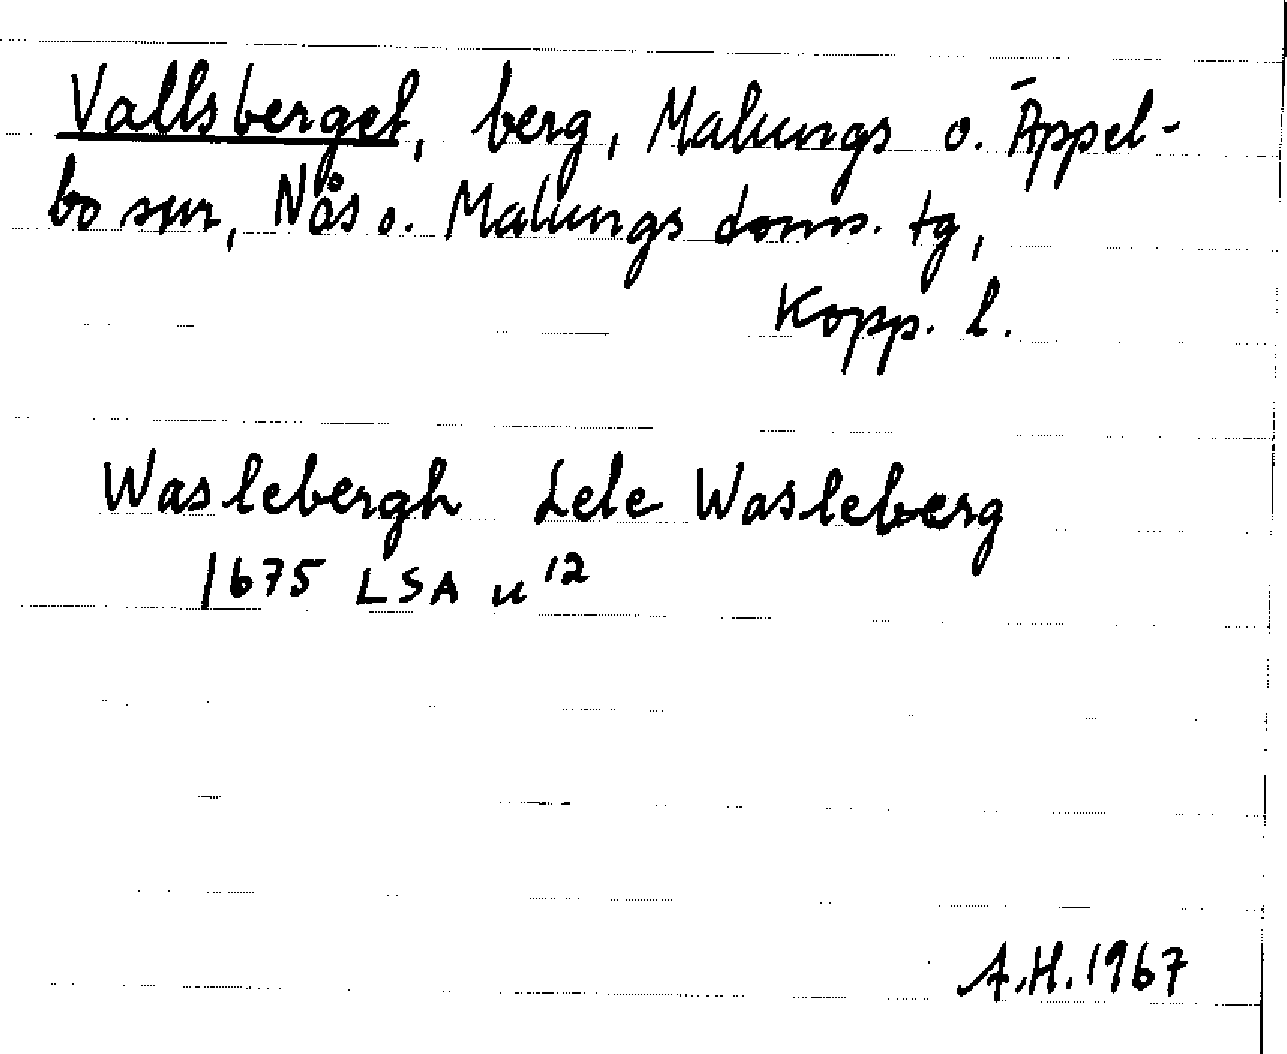 Vallsberget, berg, Malungs o. Äppel-
bo snr, Nås o. Malungs doms. tg,
Kopp. l.
Waslebergh Lele Wasleberg
1675 LSA u 12
A.H. 1967